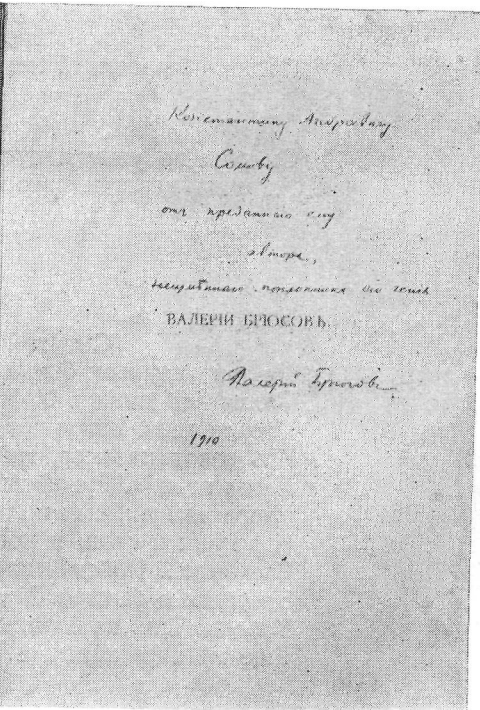 Константину Андреевичу
Сомову
отъ преданнаго ему
автора,
поклонника его генія
ВАЛЕРІЙ БРЮСОВЪ.
Валерій Брюсовъ
1910